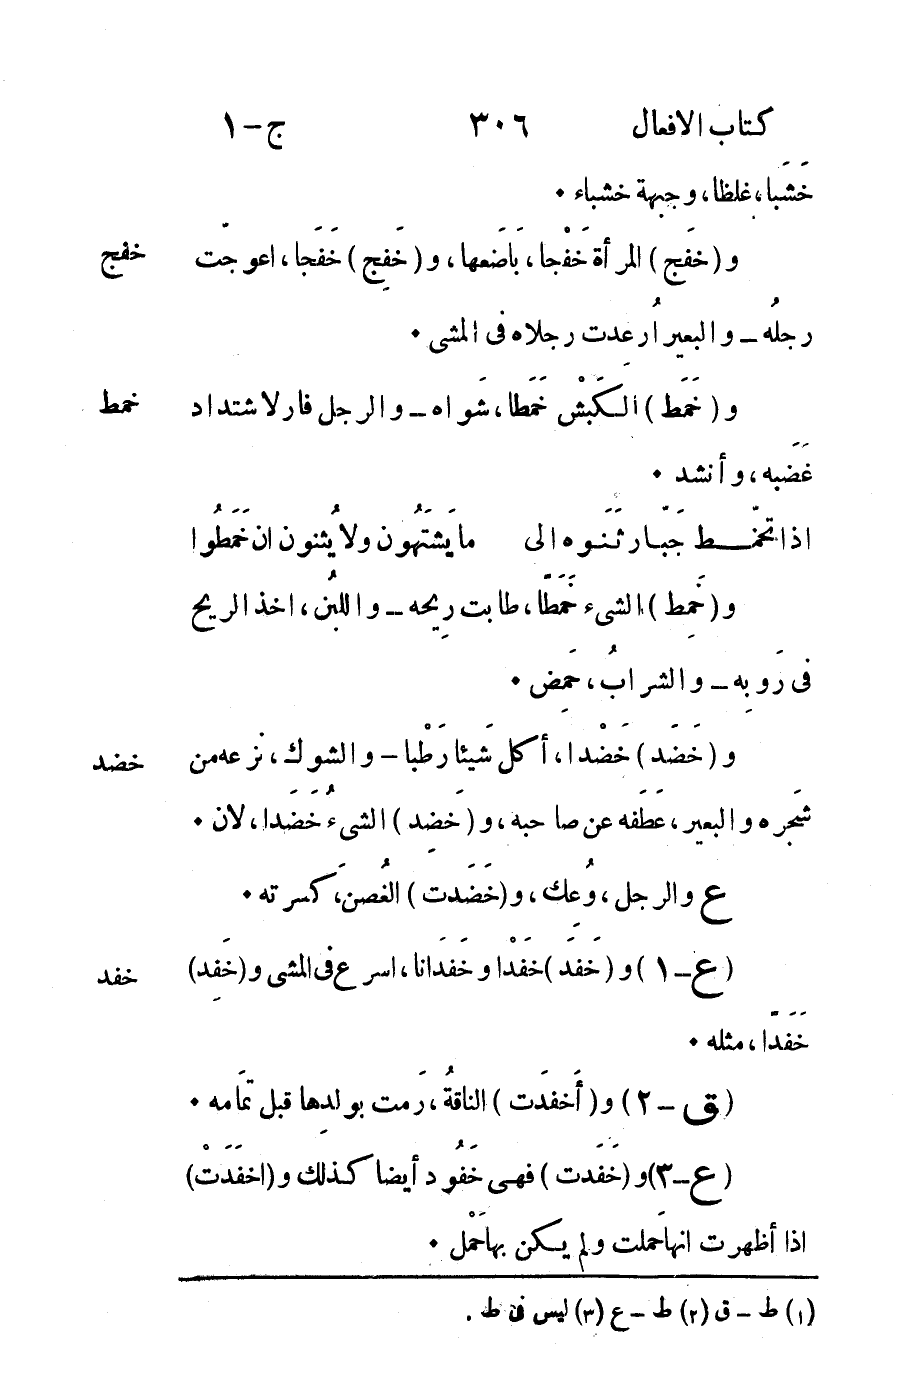 كتاب الافعال ٣٠٦ ج-١
خَشَبا، غلظا، وجبهة خشباء •
و(خفَج) المرأة خَفْجا، بَاضَعها، و(خَفِج) خَفَجا، اعوجّت خفج
رجلُه - والبعيرُ اُرعدت رِجلاه فى المشى •
و(خَمَط) الكَبْش خَمَطا، شَواه - والرجل فار لاشتداد خمط
غَضَبه، وأنشد •
اذا تخمّط جَبّار ثَنَوه الى مايَشتَهُون ولا يُثنون ان خَمَطُوا
و(خَمِط) الشىء خَمَطًا، طابت رِيحه - واللبنُ، اخذ الريح
فى رَوبِه - والشرابُ، حَمِض •
و(خَضَد) خَضْدا، أكل شَيئا رَطْبا - والشوك، نزعه من خضد
شجَره والبعير، عَطَفه عن صاحبه، و(خَضِد) الشىءُ خَضَدا، لان •
ع والرجل، وُعِك، و(خَضَدت) الغُصن، كَسرته •
(ع-١) و(خَفَد) خَفْدا وخَفَدانا، اسرع فى المشى و(خَفِد) خفد
خَفَدًا، مثله •
(ق-٢) و(أَخفَدَت) الناقةُ، رَمت بولدِها قبل تمَامه •
(ع-٣) و(خَفَدت) فهى خَفُود أيضا كذلك و(اخفَدَتْ)
اذا أظهرت انها حَملت ولم يكن بها حَمْل •
(١) ط - ق (٢) ط - ع (٣) ليس فى ط .